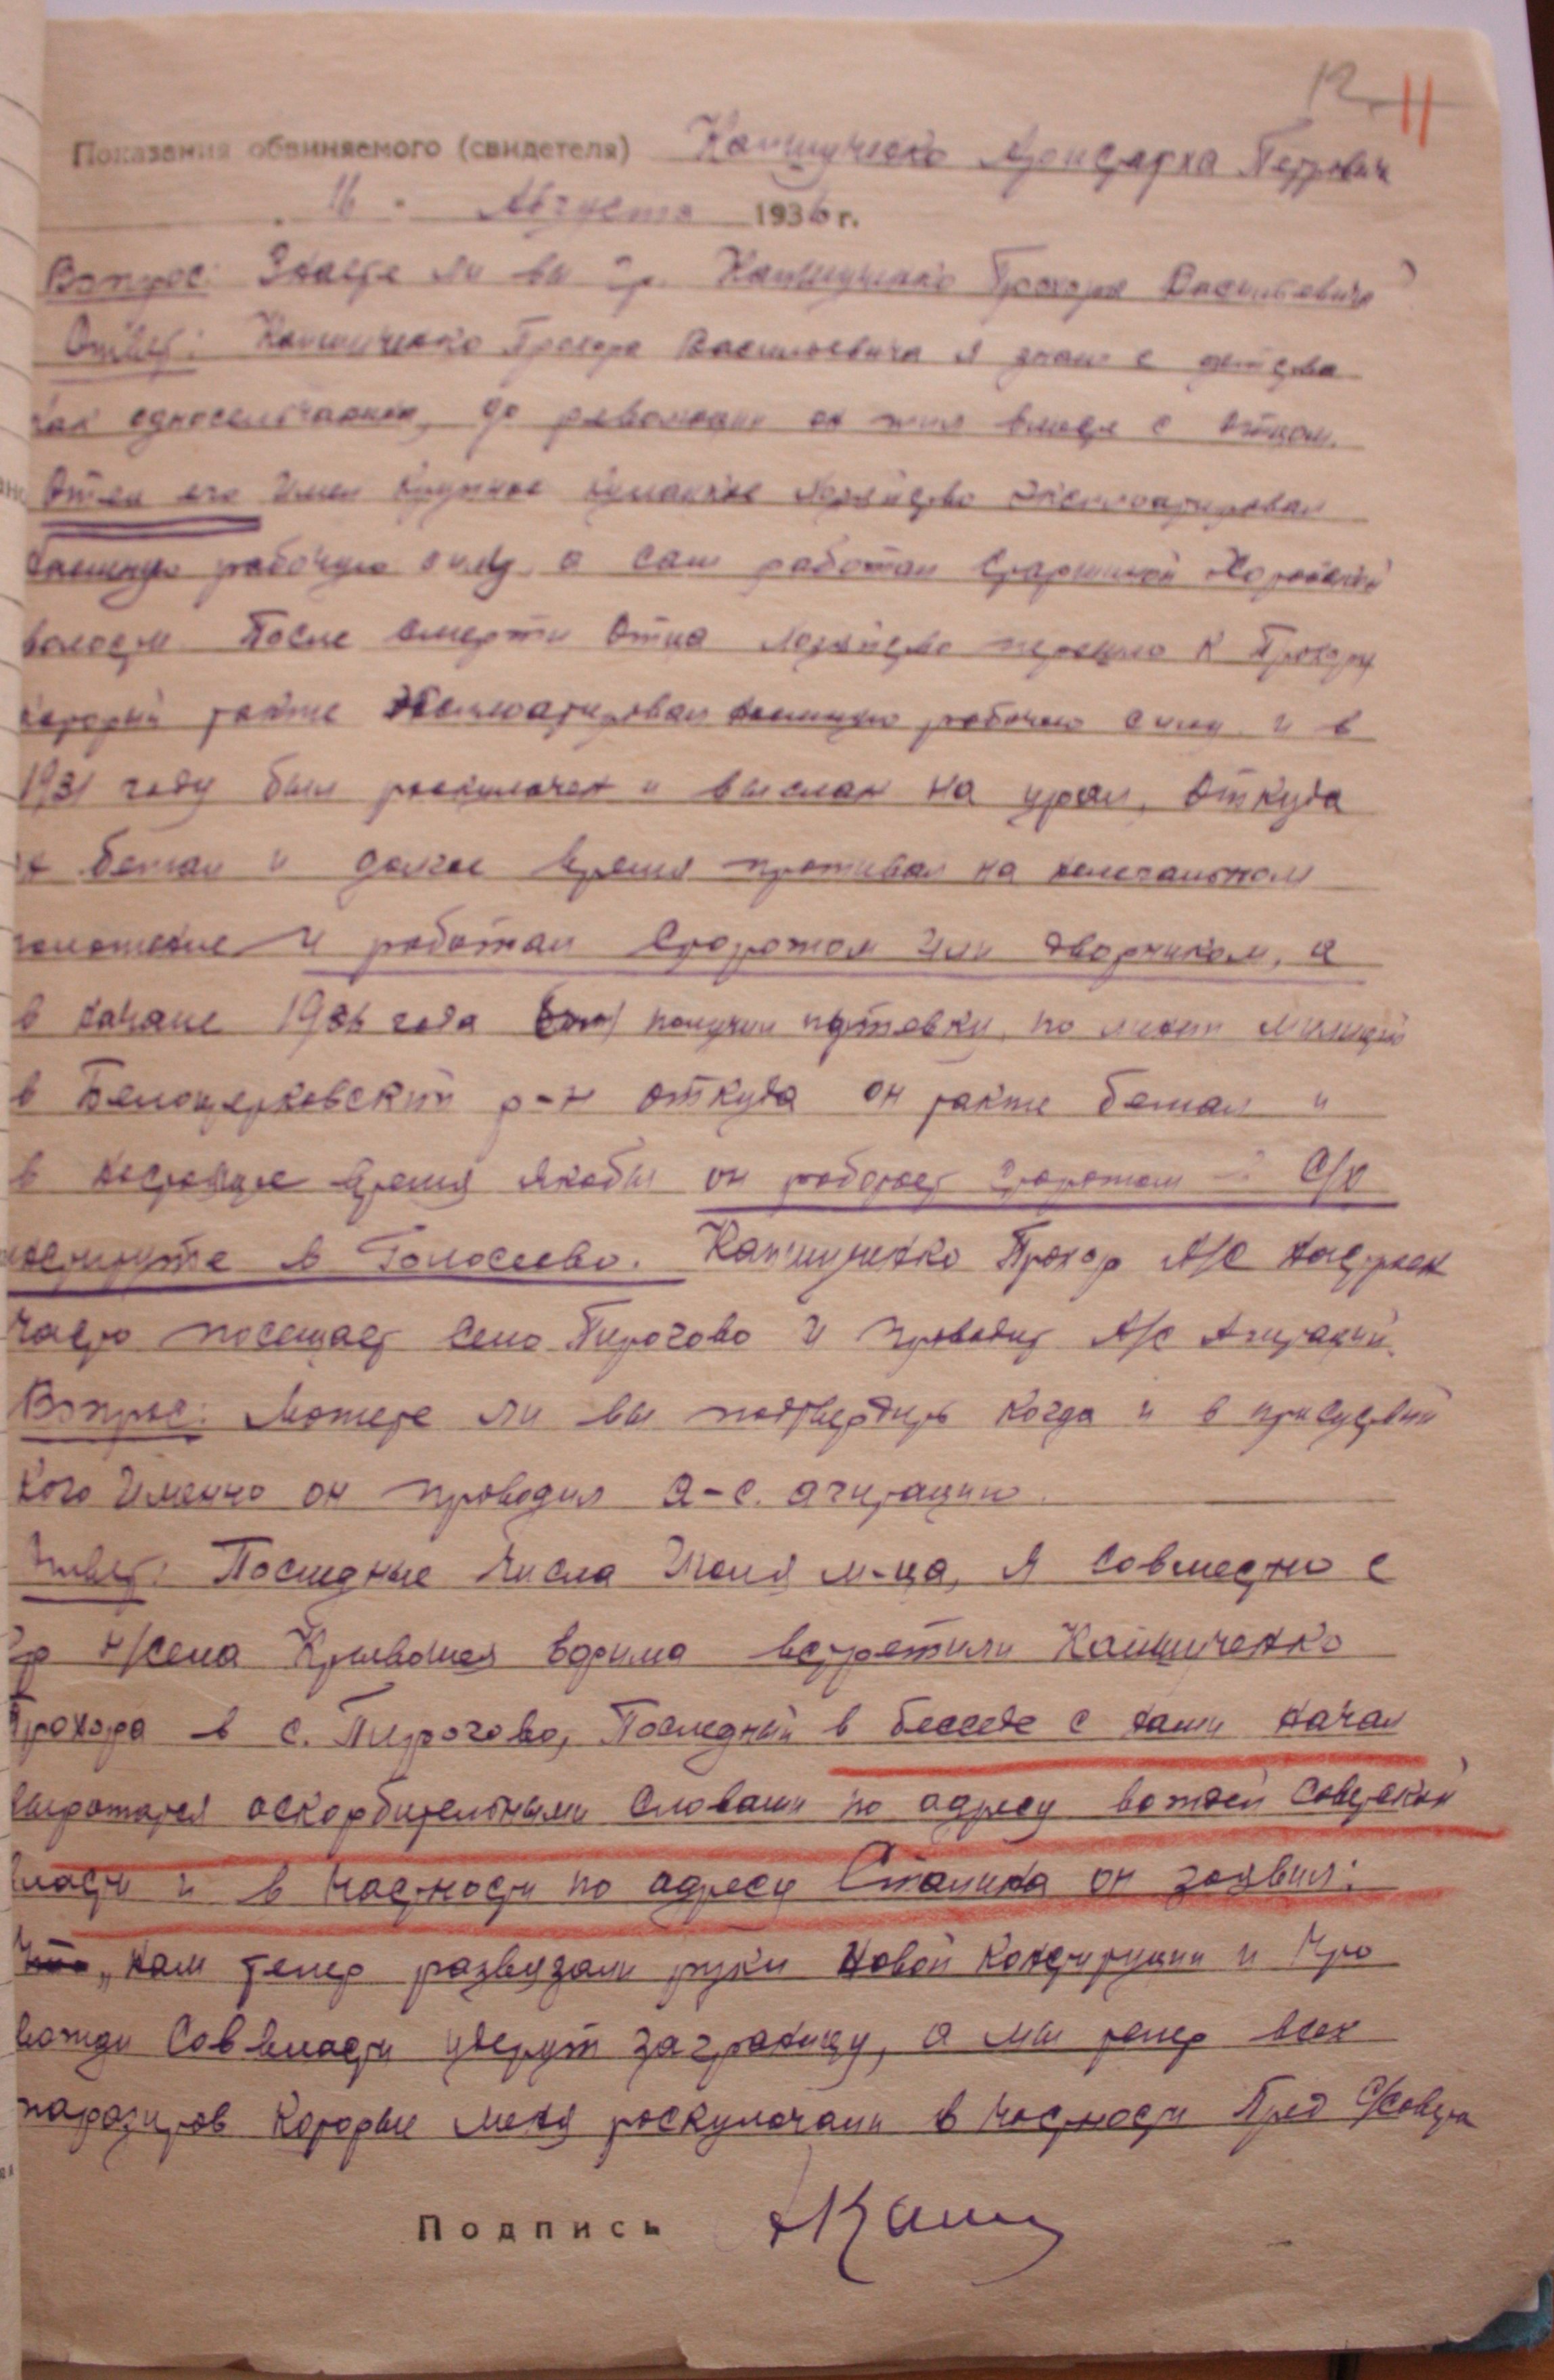 12 11
Показания обвиняемого (свидетеля) Петровича
16 Августа 1936 г.
Вопрос: Знаете ли вы гр. Прохора Васильевича
Ответ: Прохора Васильевича я знаю с детства
как односельчанина, до революции он жил вместе с отцом.
Отец его имел крупное кулацкое хозяйство эксплоатировал
наемную рабочую силу, а сам работал старшиной
волости. После смерти отца хозяйство перешло к Прохору
который также эксплоатировал наемную рабочую силу и в
1931 году был роскулачен и выслан на урал, откуда
бежал и долгое время проживал на нелегальном
положение и работал сторожом или дворником, а
в начале 1936 года получил путевку, по линии милиции
в Белоцерковский р-н откуда он также бежал и
в настоящее время якобы он работает сторожом С/х
институте в Голосеево. Прохор А/С настроен
часто посещает село Пирогово и проводит А/С Агитаций.
Вопрос: Можете ли вы подтвердить когда и в присуствий
кого именно он проводил а-с. агитацию.
Ответ: Последные числа Июля м-ца, я совместно с
гр н/села встретили Кашученко
Прохора в с. Пирогово, Последный в беседе с нами начал
выражатся оскорбительными словами по адресу вождей советской
власти и в частности по адресу Сталина он заявил:
Что „нам тепер развязали руки новой конституции и что
вожди Соввласти удерут заграницу, а мы тепер всех
паразитов которые меня роскулачали в частности Пред С/совета
Подпись